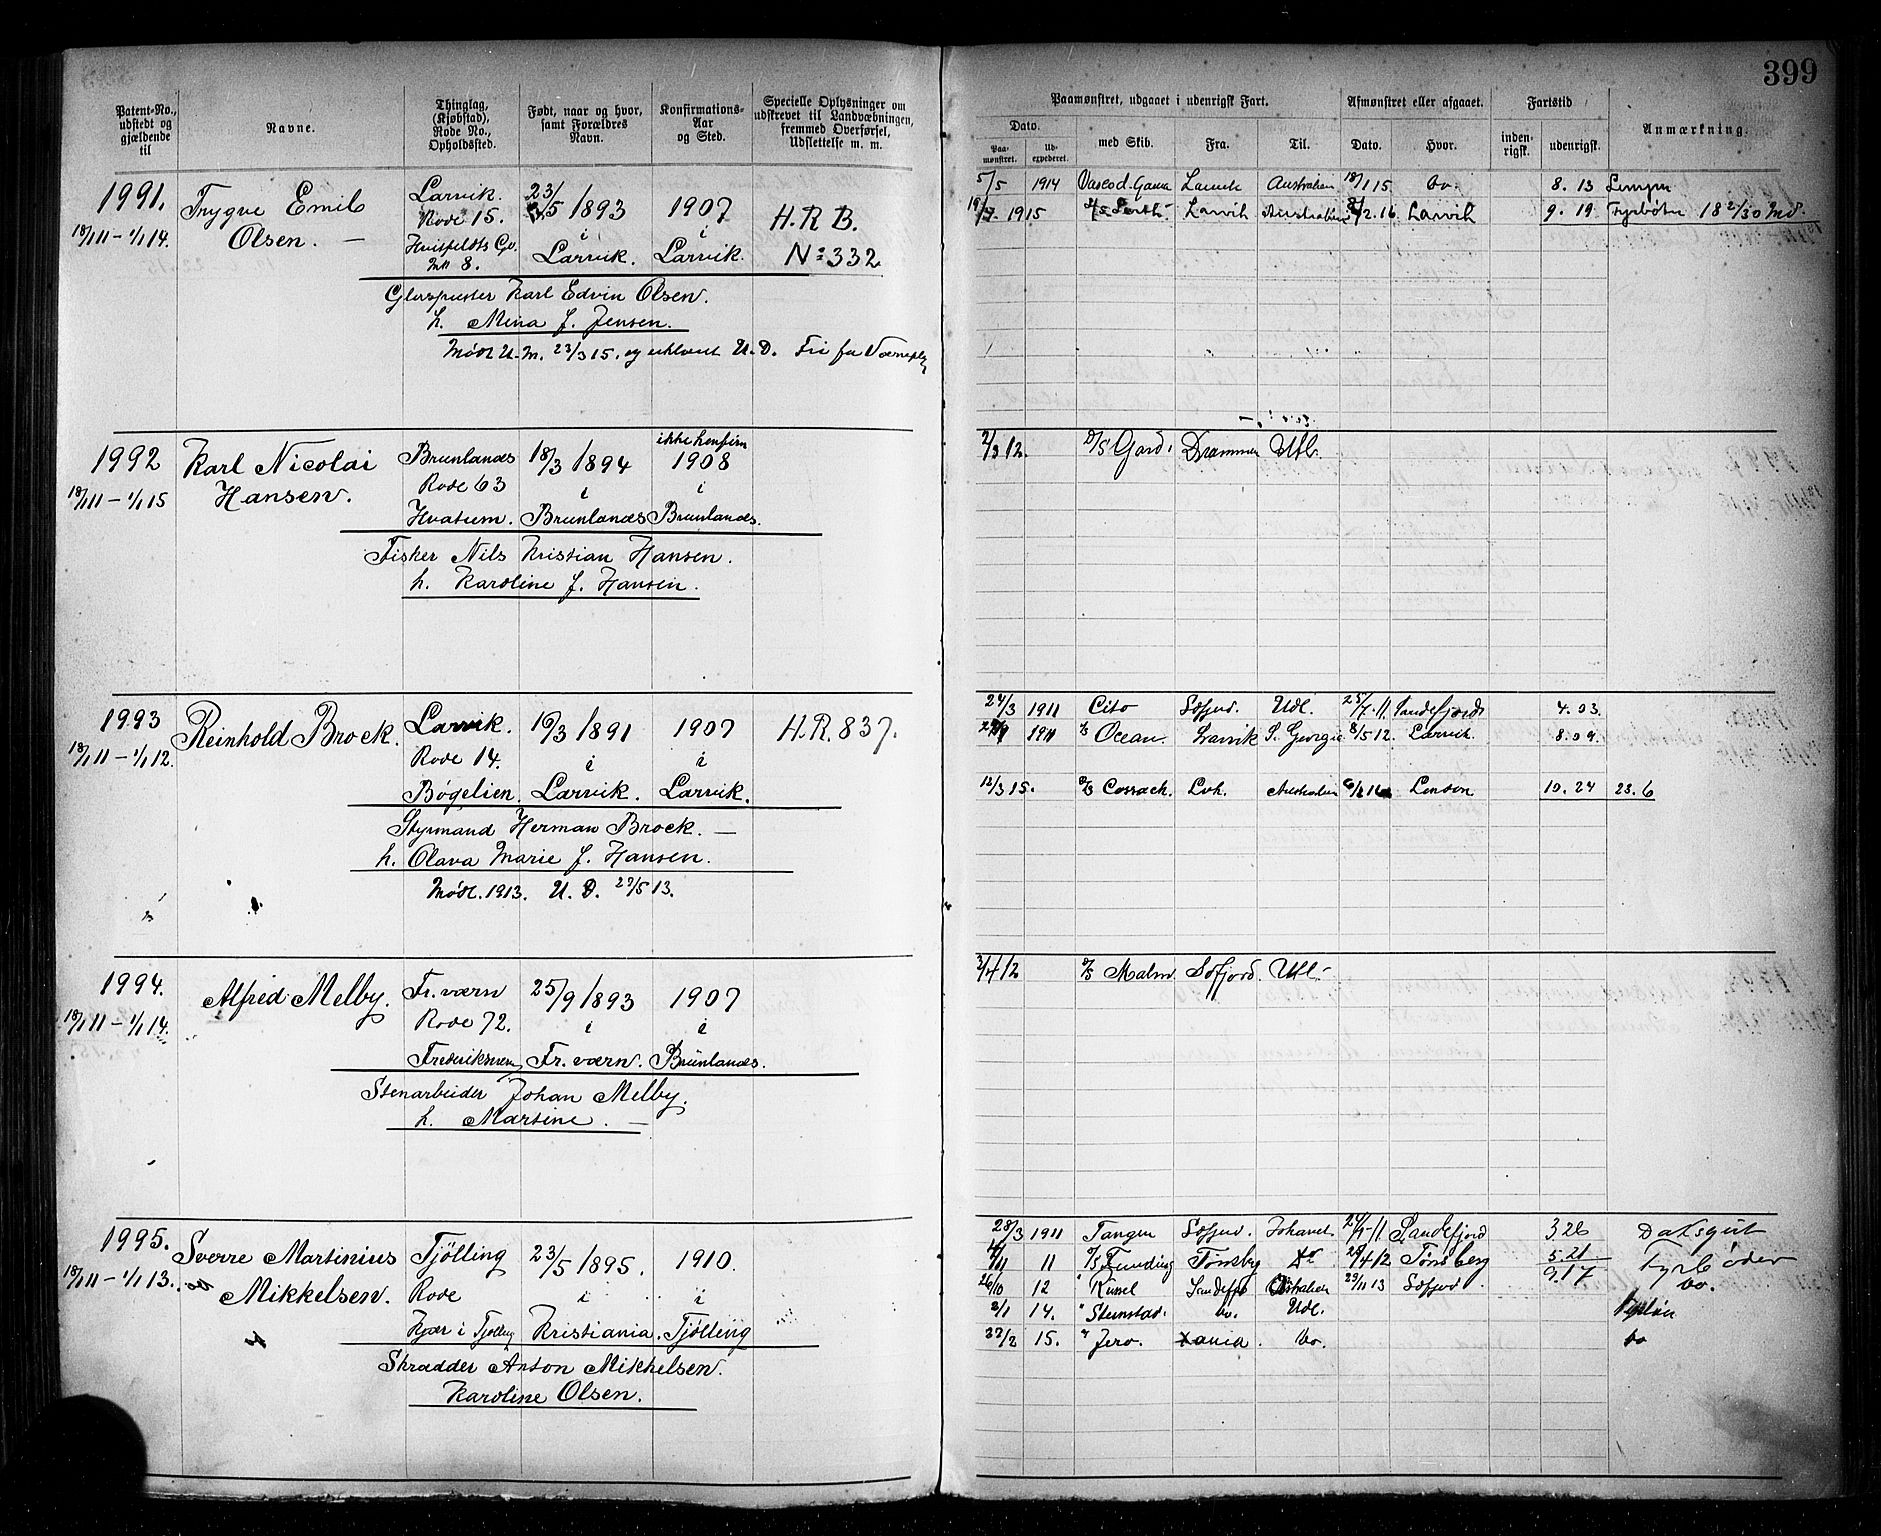 399
Patent-No., udstedt og gjældende til
Navne.
Thinglag, (Kjøbstad), Rode No., Opholdssted.
Født, naar og hvor, samt Forældres Navn.
Konfirmations-Aar og Sted.
Specielle Oplysninger om udskrevet til Landvæbningen, fremmed Overførsel, Udslettelse m. m.
Paamønstret, udgaaet i udenrigsk Fart.
Afmønstret eller afgaaet.
Fartstid
Anmærkning.
Dato.
Paa-mønstret.
Ud-expederet.
med Skib.
Fra.
Til.
Dato.
Hvor.
inden-rigsk.
udenrigsk.
1991. Trygve Emil Larvik. 23/5 1893 1907 H.R.B.
18/1 11 – 1/1 14. Olsen. — Rode 15. i i
Huitfeldts Gd. Larvik. Larvik. No 332
No 8.
Glaspuster Karl Edvin Olsen.
h. Mina f. Jensen.
Mødt U.M. 23/3 15. og erklæret U.D. Fri for Værnepl
5/5 1914 Vasco d. Gama Larvik Australien 18/1 15 do. 8. 13 Lemper
1915 Larvik Australien 2.16 Larvik 9. 19 Fyrbøter 18 2/30 Md.
1992 Karl Nicolai Brunlandes 18/3 1894 ikke konfirm 1908
18/1 11 – 1/1 15 Hansen. Rode 63 i i
Hvatum. Brunlandes Brunlandes.
Fisker Nils Kristian Hansen.
h. Karoline f. Hansen.
2/3 12. D/S Gard. Drammen Utl.
1993 Reinhold Brock. Larvik. 19/3 1891 1907 H.R. 837.
18/1 11 – 1/1 12. Rode 14. i i
Bøgelien. Larvik. Larvik.
Styrmand Herman Brock. —
h. Olava Marie f. Hansen.
Mødt. 1913. U. D. 29/5 13.
24/3 1911 Cito Sdfjord. Udl. 25/7. 11. Sandefjord 4. 03.
1911 Ocean. Larvik S. Georgia 8/5 12. Larvik. 8. 09.
12/3 15. Cossack. Lvk. Australien London 10. 24 23. 6
1994. Alfred Melby. Fr. værn 25/9 1893 1907
18/1 11 – 1/1 14. Rode 72. i i
Frederiksværn Fr. værn. Brunlandes.
Stenarbeider Johan Melby.
h. Martine. —
3/4 12 Malm Sdfjord. Utl. -
1995. Sverre Martinius Tjølling 23/5 1895. 1910.
18/1 11 – 1/1 13. Mikkelsen. Rode i i
Kjær i Tjølling Kristiania. Tjølling
Skrædder Anton Mikkelsen.
Karoline Olsen.
28/3 1911 Tangen Sdfjord. Sandefjord 3.26 Daksgut
11 Tønsby 4 12 Tønsberg 5.21 Fyrbøder
26/10 12 " Kussel Sandefjd Australien 29/11 13 Sdfjord. 9.17 do.
2/1 14. " Stenstad. do. Udl.
22/2 15. " Jero. Xania. do. do